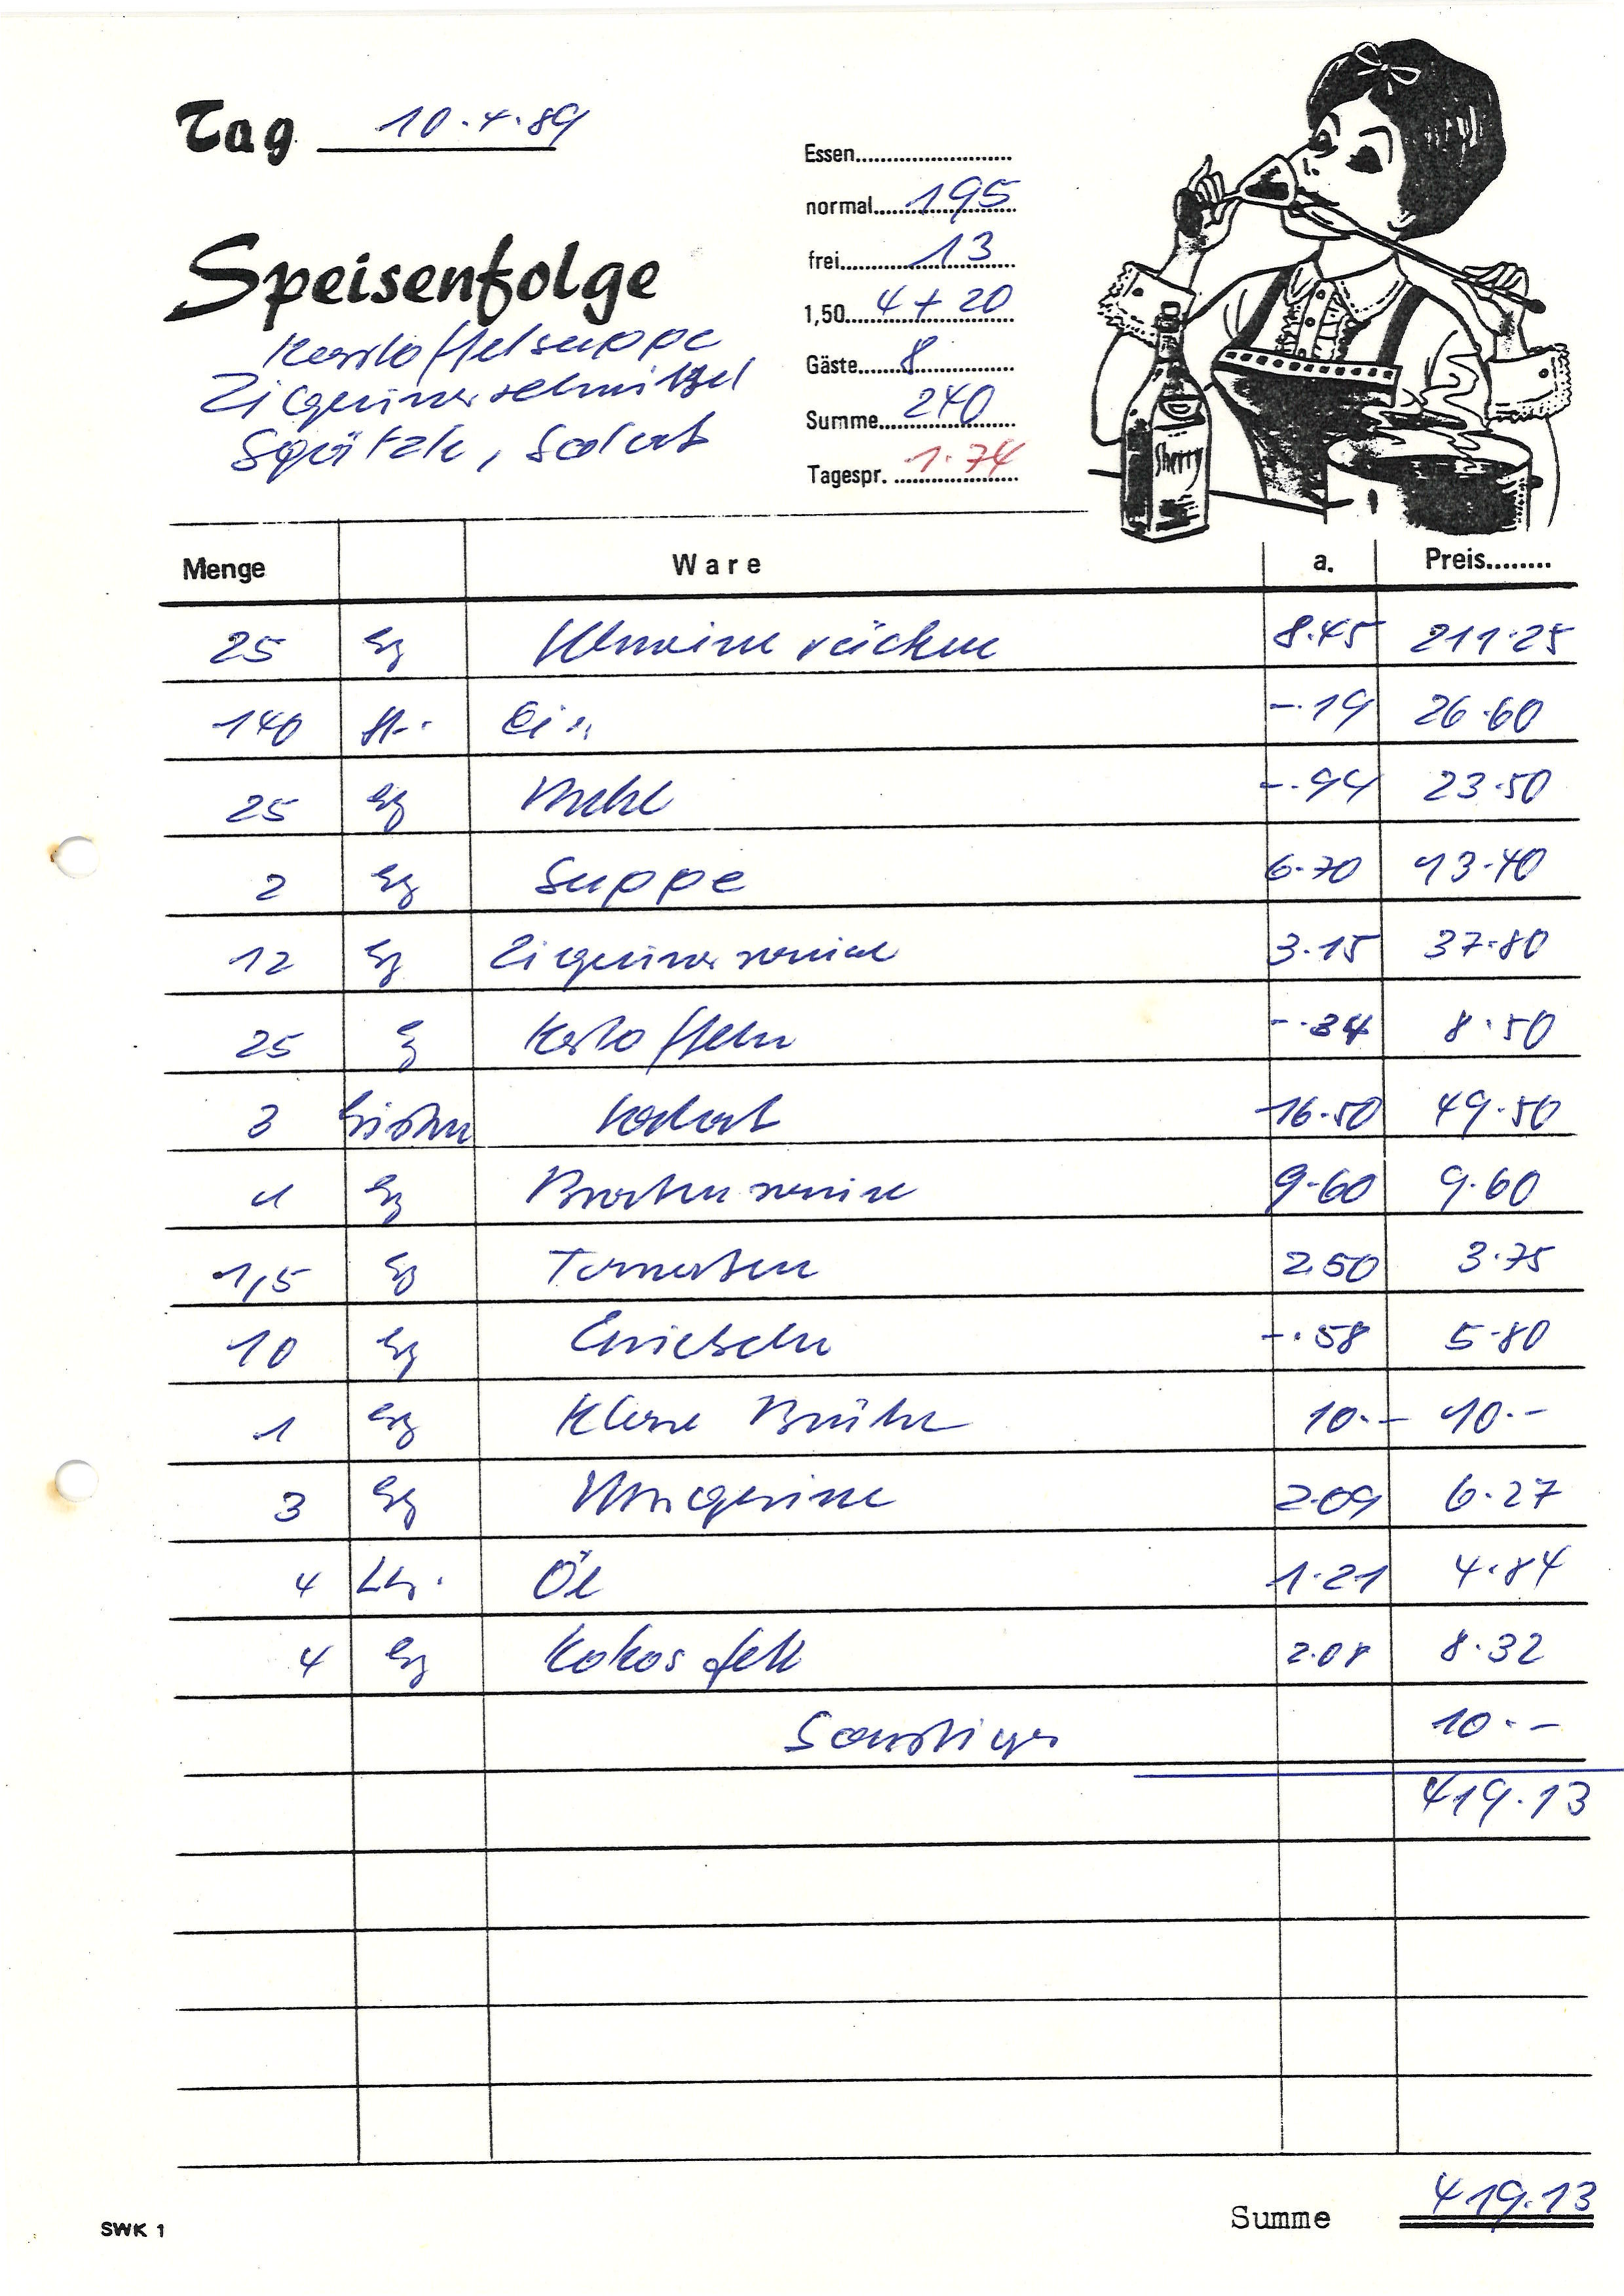 Tag 10.4.89
Essen
normal 195
frei 13
Speisenfolge
1,50 4 + 20
Kartoffelsuppe
Gäste 8
Zigeunerschnitzel
Summe 240
Spätzle, Salat
Tagespr. 1.74
Sherry
Menge Ware a. Preis
25 kg Schweinerücken 8.45 211.25
140 St. Eier -.19 26.60
25 kg Mehl -.94 23.50
2 kg Suppe 6.70 13.40
12 kg Zigeunersauce 3.15 37.80
25 kg Kartoffeln -.34 8.50
3 Kisten Salat 16.50 49.50
1 kg Bratensauce 9.60 9.60
1,5 kg Tomaten 2.50 3.75
10 kg Zwiebeln -.58 5.80
1 kg Klare Brühe 10.- 10.-
3 kg Margarine 2.09 6.27
4 Ltr. Öl 1.21 4.84
4 kg Kokosfett 2.08 8.32
Sonstiges 10.-
419.13
Summe 419.13
SWK 1